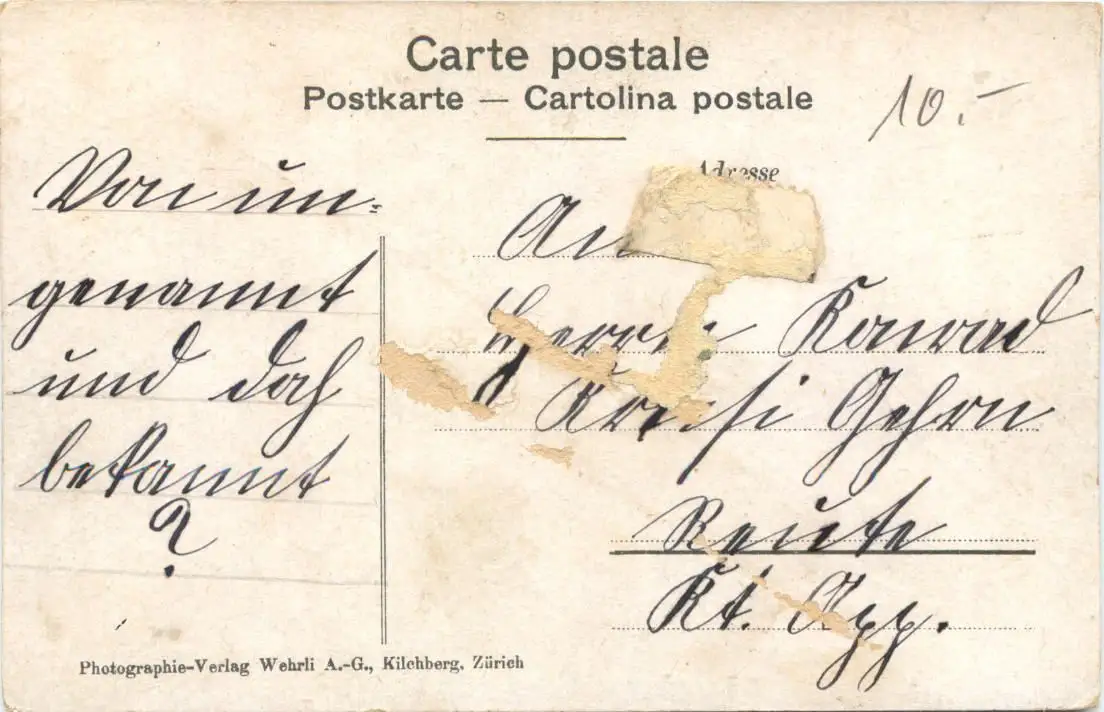 Carte postale
Postkarte — Cartolina postale
10.–
Adresse
Von un-
genannt
und doch
bekannt
?
An
Herrn Konrad
Gehrn
Reute
Kt. App.
Photographie-Verlag Wehrli A.-G., Kilchberg, Zürich